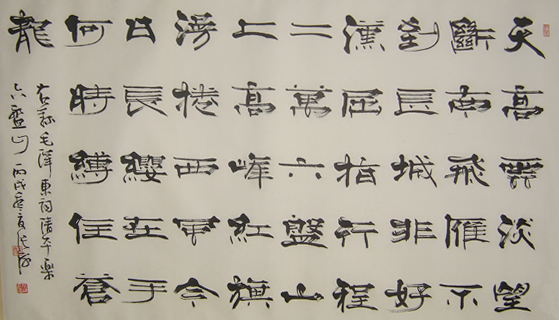 天高雲淡望
斷南飛雁不
到長城非好
漢屈指行程
二萬六盤山
上高峰紅旗
漫捲西風今
日長纓在手
何時縛住蒼
龍
右錄毛澤東詞清平樂
六盤山 丙戌